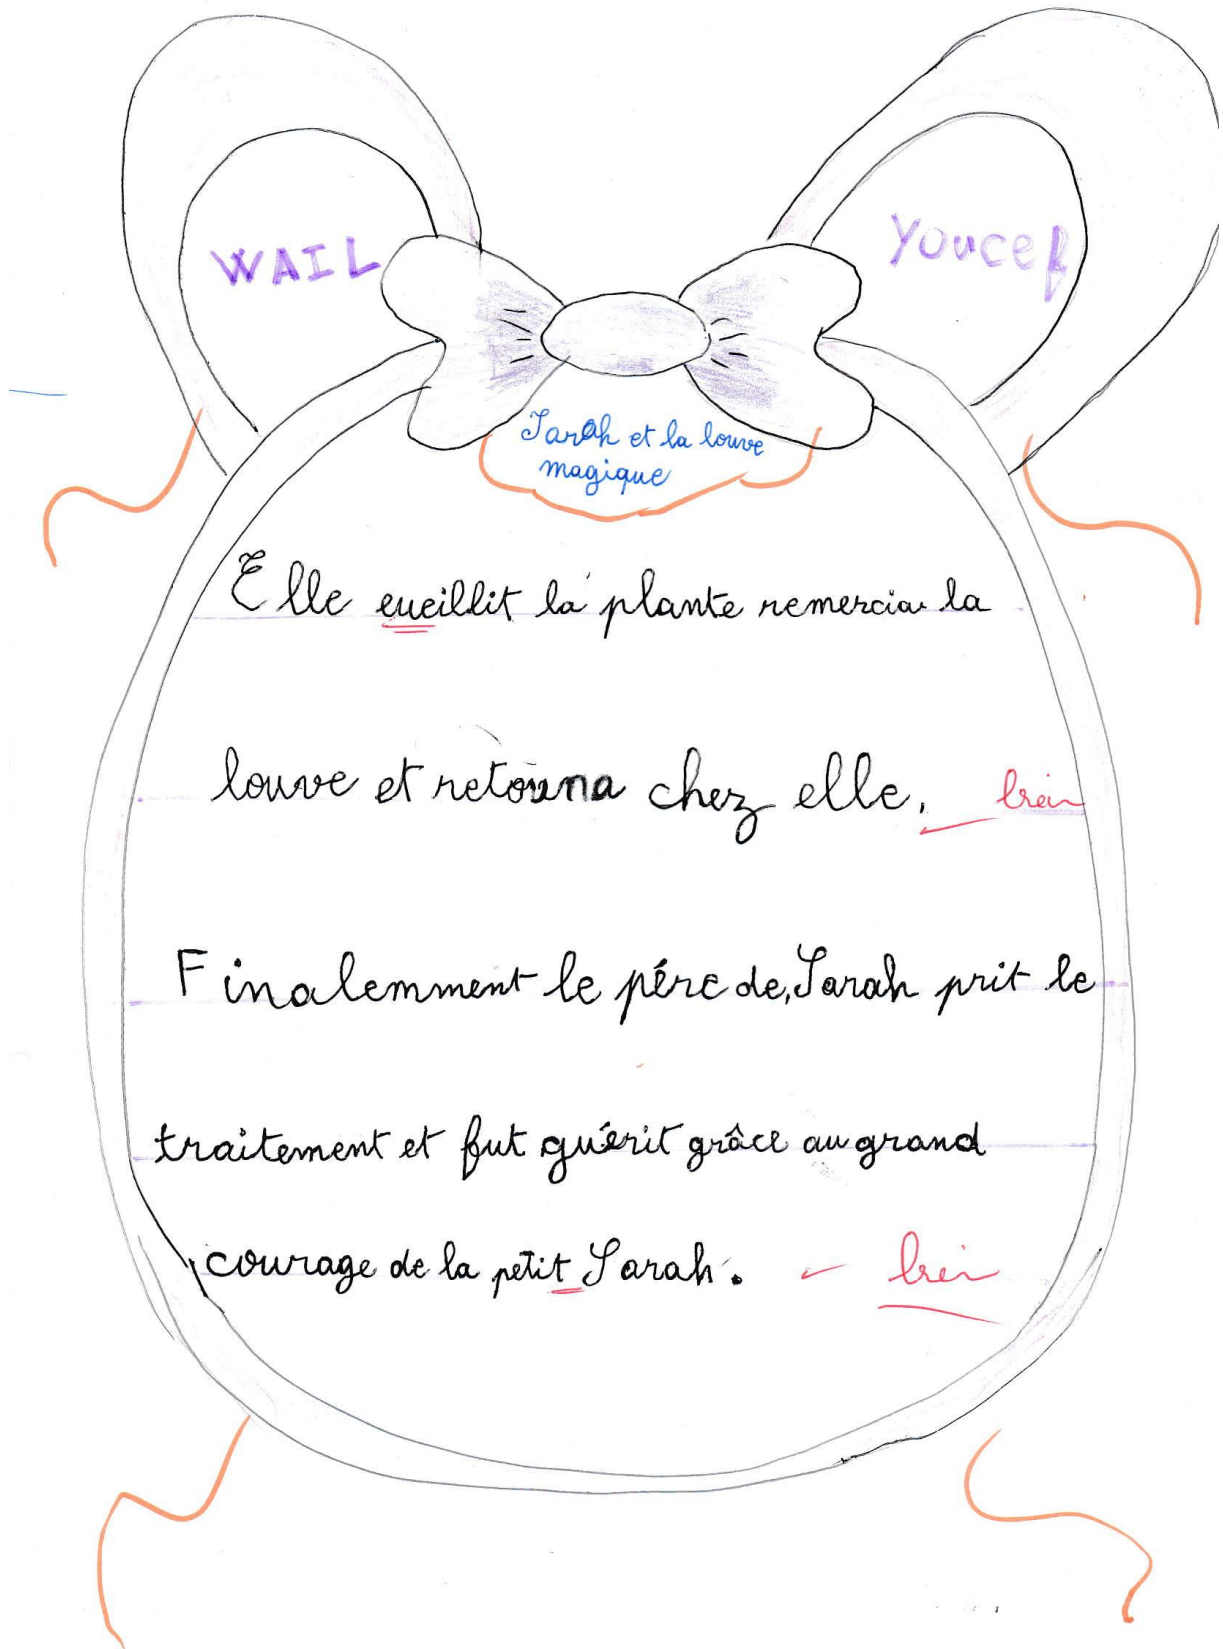 WAIL
Youcef
Sarah et la louve
magique
Elle cueillit la plante remercia la
louve et retourna chez elle. bien
Finalemment le pére de, Sarah prit le
traitement et fut guérit grâce au grand
courage de la petit Sarah. bien